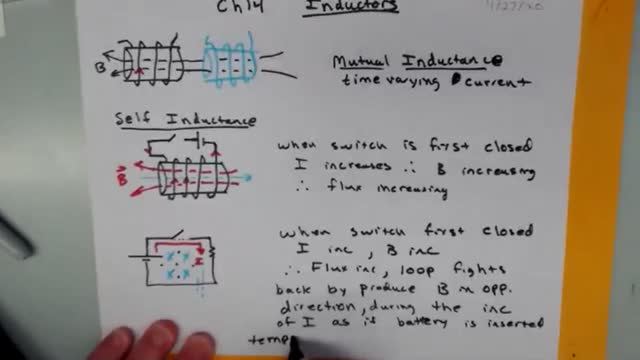 Ch14 Inductors
4/27/20
B
Mutual Inductance
time varying current
Self Inductance
B
when switch is first closed
I increases ∴ B increasing
∴ flux increasing
I
when switch first closed
I inc, B inc
∴ Flux inc, loop fights
back by produce B in opp.
direction, during the inc
of I as if battery is inserted
temp